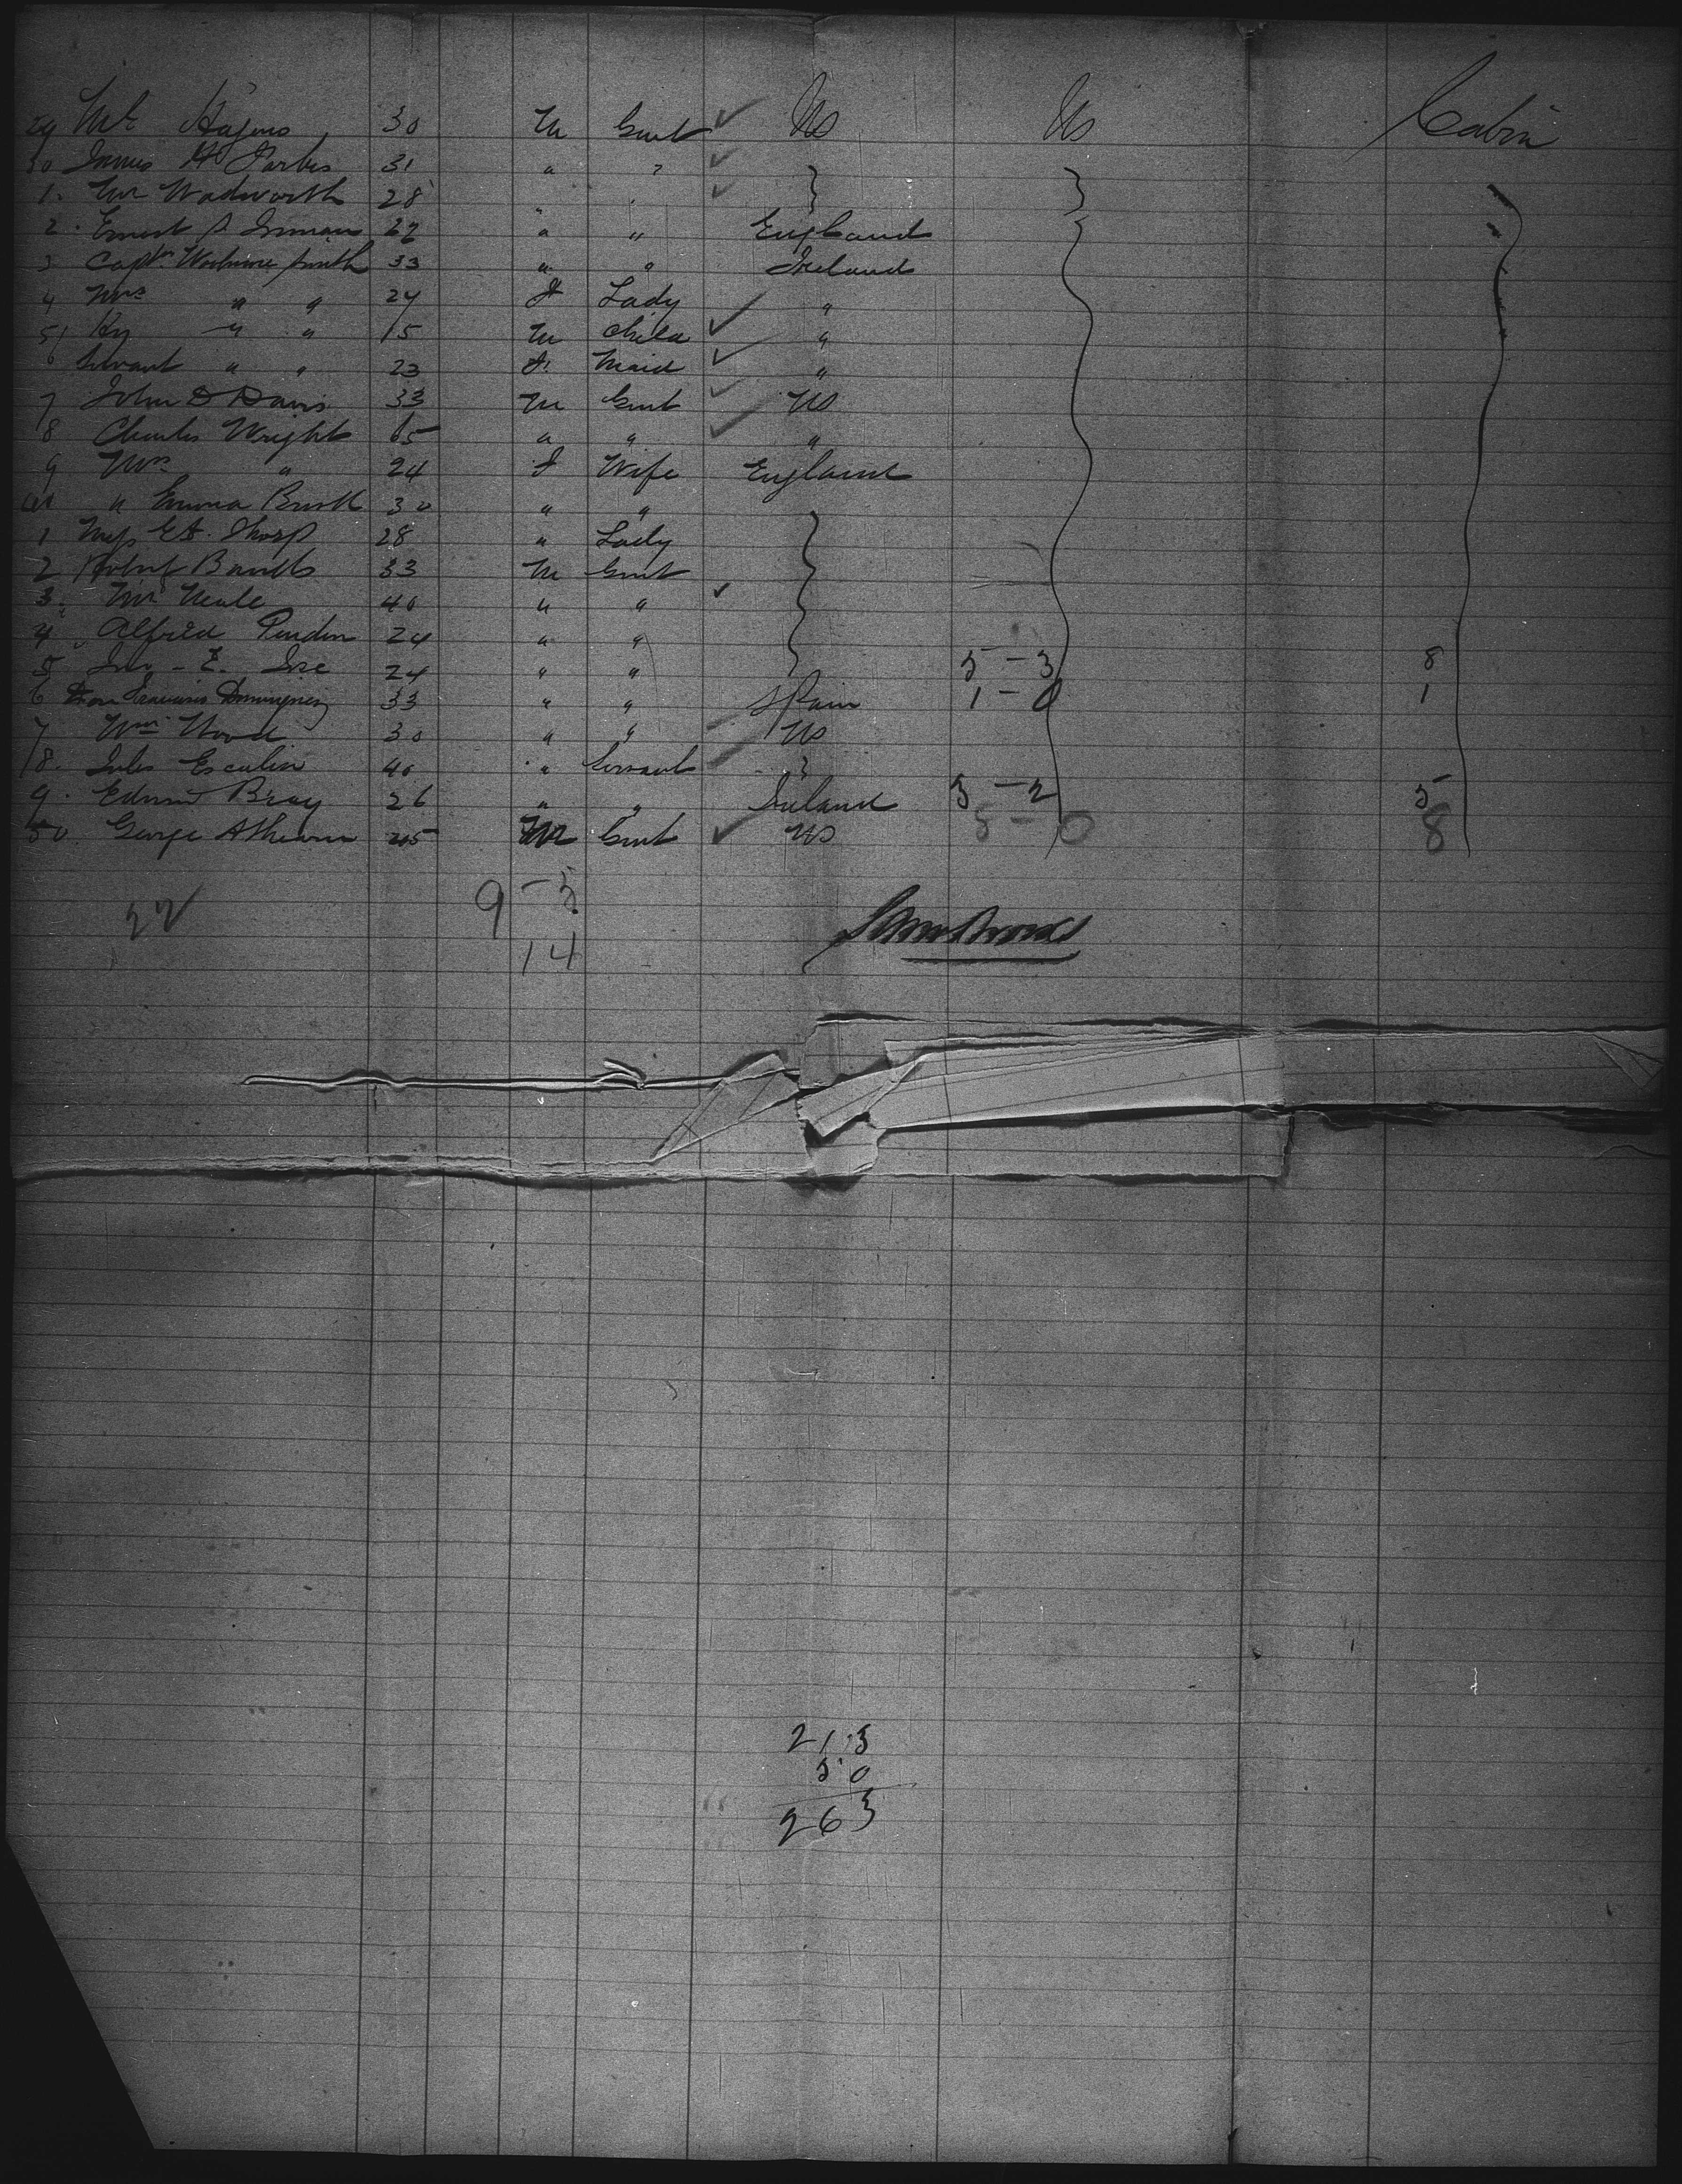 29 Mr Hagins 30 M Gent ✓ US US Cabin
30 James H Forbes 31 " " ✓
1. Mr Wadsworth 28 " " ✓
2. Ernest S Inman " " England
3 Capt. Smith 33 " " Ireland
4 Mrs " " 24 F Lady "
5 Hy " " 15 M Child ✓ "
6 Servant " " 23 F. Maid ✓ "
7 John D Davis 33 M Gent ✓ US
8 Charles Wright 65 " " ✓ "
9 Mrs " 24 F Wife England
" Emma 30 " "
1 Miss Thorp 28 " Lady
2 Robert 33 M Gent
3. Mr Neale 40 " " ✓
4 Alfred 24 " "
5 24 " " 5 - 3 8
6 Don 33 " " Spain 1 - 0 1
7 Wm Wood 30 " " US
8. Jules Escalin 40 " Servant
9. Edward Bray 26 " " Ireland 3 - 2 5
50. George 45 M Gent ✓ US 8 - 0 8
22 9 - 5
14
213
50
263